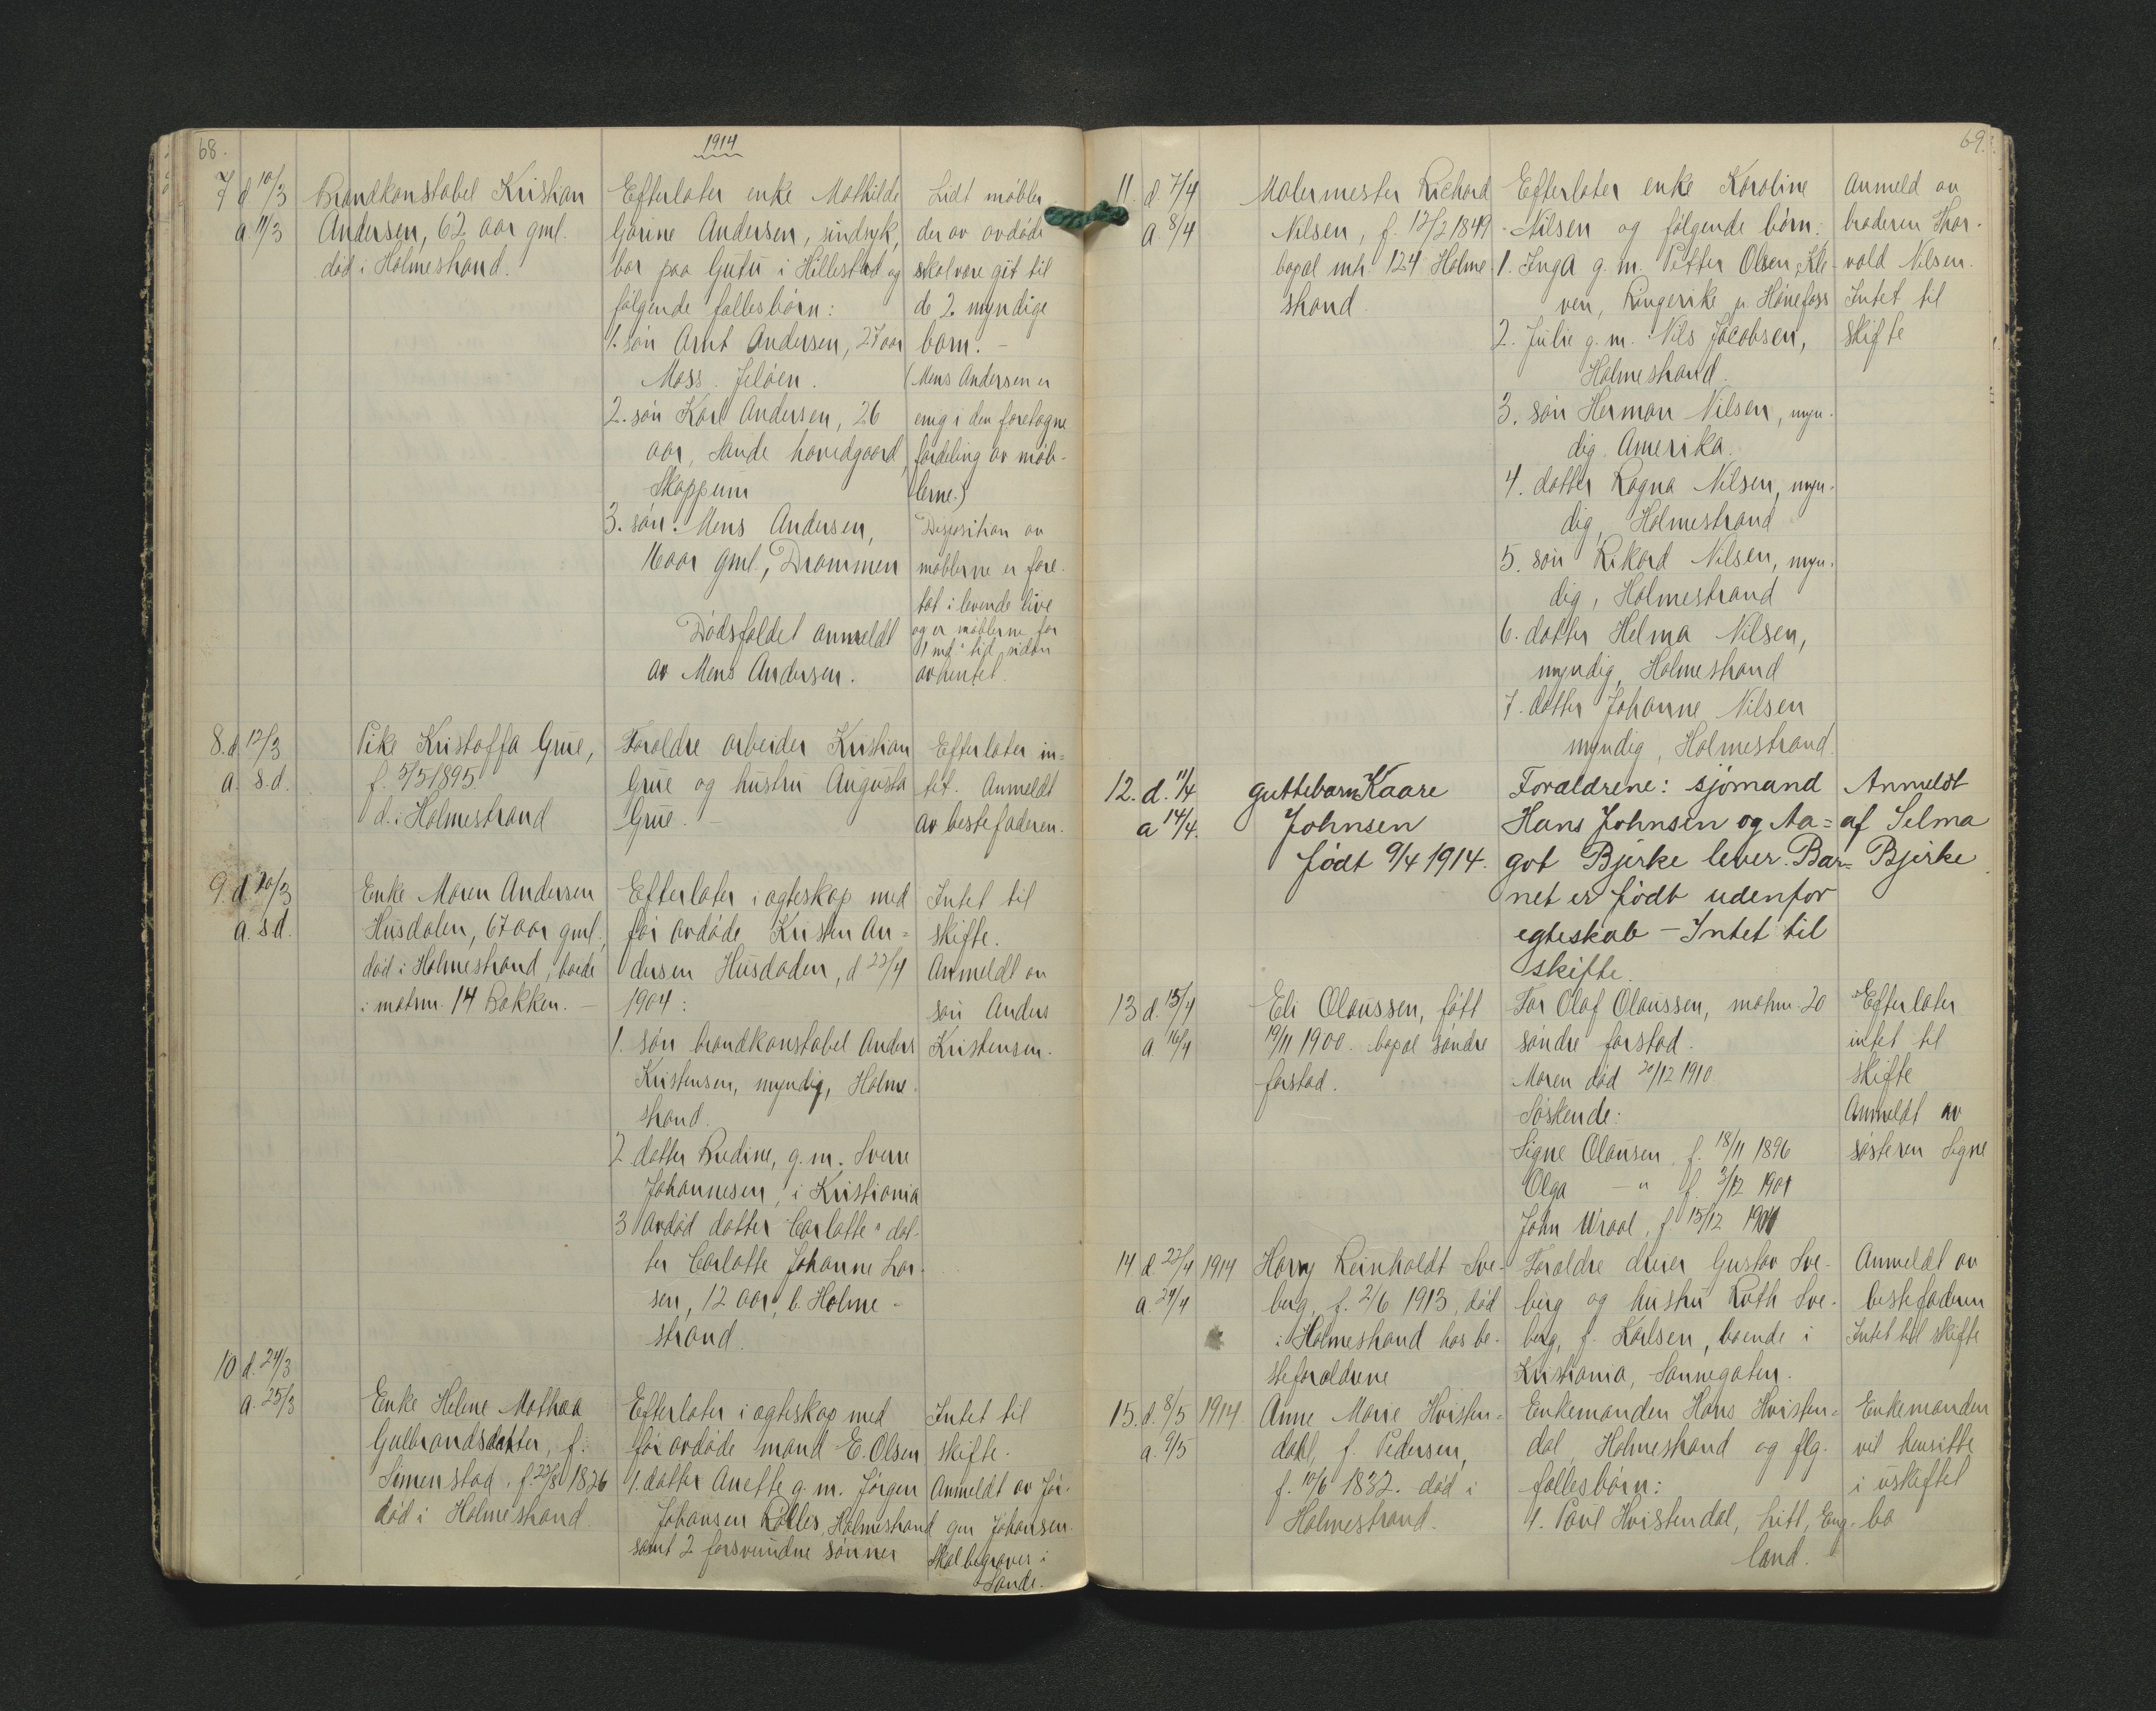 68.
1914
7 d 10/3
a 11/3
Brandkonstabel Kristian
Andersen, 62 aar gml.
död i Holmestrand.
Efterlater enke Mathilde
Gurine Andersen, sindsyk,
bor paa Gutu i Hillestad og
følgende fællesbørn:
1. søn Arnt Andersen, 27 aar
Moss. Jeløen.
2. søn Karl Andersen, 26
aar, Sande hovedgaard,
Skoppum
3. søn. Mens Andersen,
16 aar gml., Drammen
Dødsfaldet anmeldt
av Mens Andersen.
Lidt møbler
der av avdøde
skal være git til
de 2 myndige
barn. -
(Mens Andersen er
enig i den foretagne
fordeling av møb-
lerne.)
Disposition av
møblerne er fore-
tat i levende live
og er møblerne for
1 md's tid siden
avhentet.
8. d 12/3
a. s.d.
Pike Kristoffa Grue,
f. 5/5 1895
d. i Holmestrand
Forældre arbeider Kristian
Grue og hustru Augusta
Grue. -
Efterlater in-
tet. Anmeldt
av bestefaderen.
9. d. 20/3
a. s.d.
Enke Maren Andersen
Husdalen, 67 aar gml.,
død i Holmestrand, boede
i matrnr. 14 Bakken. -
Efterlater i egteskap med
før avdøde Kristen An-
dersen Husdalen, d 22/4
1904:
1. søn brandkonstabel Anders
Kristensen, myndig, Holme-
strand.
2 datter Bredine, g. m. Sverre
Johannesen, i Kristiania
3 Avdød datter Carlotte's dat-
ter Carlotte Johanne Lar-
sen, 12 aar, b. Holme-
strand.
Intet til
skifte.
Anmeldt av
søn Anders
Kristensen.
10 d. 24/3
a. 25/3
Enke Helene Mathea
Gulbrandsdatter, f.
Simenstad. f. 22/8 1826
död i Holmestrand
Efterlater i egteskap med
før avdøde mand E. Olsen
1. datter Anette g. m. Jørgen
Johansen Rølles, Holmestrand
samt 2 forsvundne sønner
Intet til
skifte.
Anmeldt av Jør-
gen Johansen.
Skal begraves i
Sande.
69.
11. d 7/4
a 8/4
Malermester Richard
Nilsen, f. 12/2 1849
bopæl mtr. 124 Holme
strand
Efterlater enke Karoline
Nilsen og følgende børn:
1. Inga g. m. Petter Olsen, Kle-
ven, Ringerike pr Hönefoss
2. Julie g. m. Nils Jacobsen,
Holmestrand.
3. søn Herman Nilsen, myn-
dig. Amerika.
4. datter Ragna Nilsen, myn-
dig, Holmestrand
5. søn Rikard Nilsen, myn-
dig, Holmestrand
6. datter Helma Nilsen,
myndig, Holmestrand
7. datter Johanne Nilsen
myndig, Holmestrand.
Anmeld av
broderen Thor-
vald Nilsen.
Intet til
skifte
12. d. 11/4
a 14/4.
guttebarn Kaare
Johnsen
født 9/4 1914.
Forældrene: sjømand
Hans Johnsen og Aa=
got Bjerke lever. Bar=
net er født udenfor
egteskab - Intet til
skifte.
Anmeldt
af Selma
Bjerke.
13 d. 15/4
a. 16/4
Eli Olaussen, føtt
19/11 1900. bopæl søndre
forstad.
Far Olaf Olaussen, matrnr. 20
søndre forstad.
Moren død 20/12 1910
Søskende:
Signe Olausen. f. 18/11 1896
Olga - " f. 3/12 1901
John f 15/12
Efterlater
intet til
skifte
Anmeldt av
søsteren Signe
14 d. 22/4 1914
a. 24/4
Harry Reinholdt Sve-
berg, f. 2/6 1913, död
i Holmestrand hos be-
steforældrene
Forældre dreier Gustav Sve-
berg og hustru Ruth Sve-
berg, f. Karlsen, boende i
Kristiania, Sannegaten.
Anmeldt av
bestefaderen
Intet til skifte
15. d. 8/5 1914
a. 9/5
Anne Marie Hvisten=
dahl, f. Pedersen,
f. 10/6 1832. död i
Holmestrand.
Enkemanden Hans Hvisten=
dal, Holmestrand og flg.
fællesbørn:
1. Paul Hvistendal, Litt, Eng-
land.
Enkemanden
vil hensitte
i uskiftet
bo